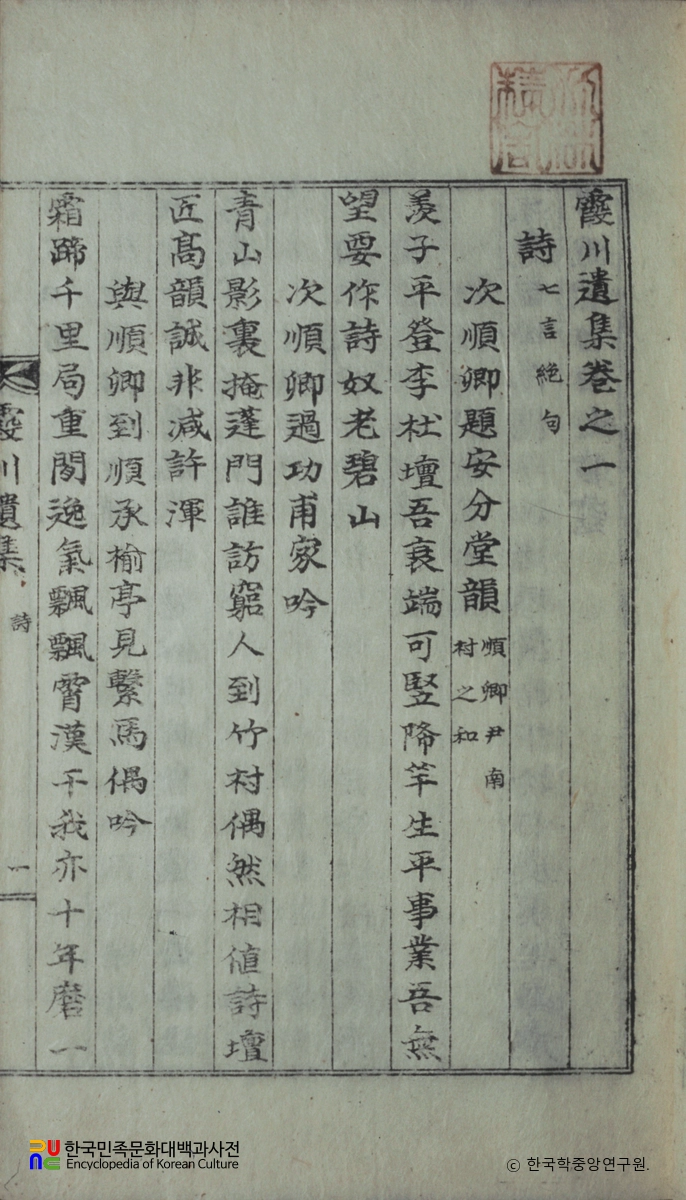 霞川遺集卷之一
詩 七言絶句
次順卿題安分堂韻 順卿尹南村之和
羨子平登李杜壇吾衰端可竪降竿生平事業吾無
望要作詩奴老碧山
次順卿過功甫家吟
青山影裏掩蓬門誰訪窮人到竹村偶然相值詩壇
匠高韻誠非减許渾
與順卿到順承榆亭見繫馬偶吟
霜蹄千里局重閒逸氣飄飄霄漢干我亦十年磨一
霞川遺集
詩
一
한국민족문화대백과사전
Encyclopedia of Korean Culture
© 한국학중앙연구원.